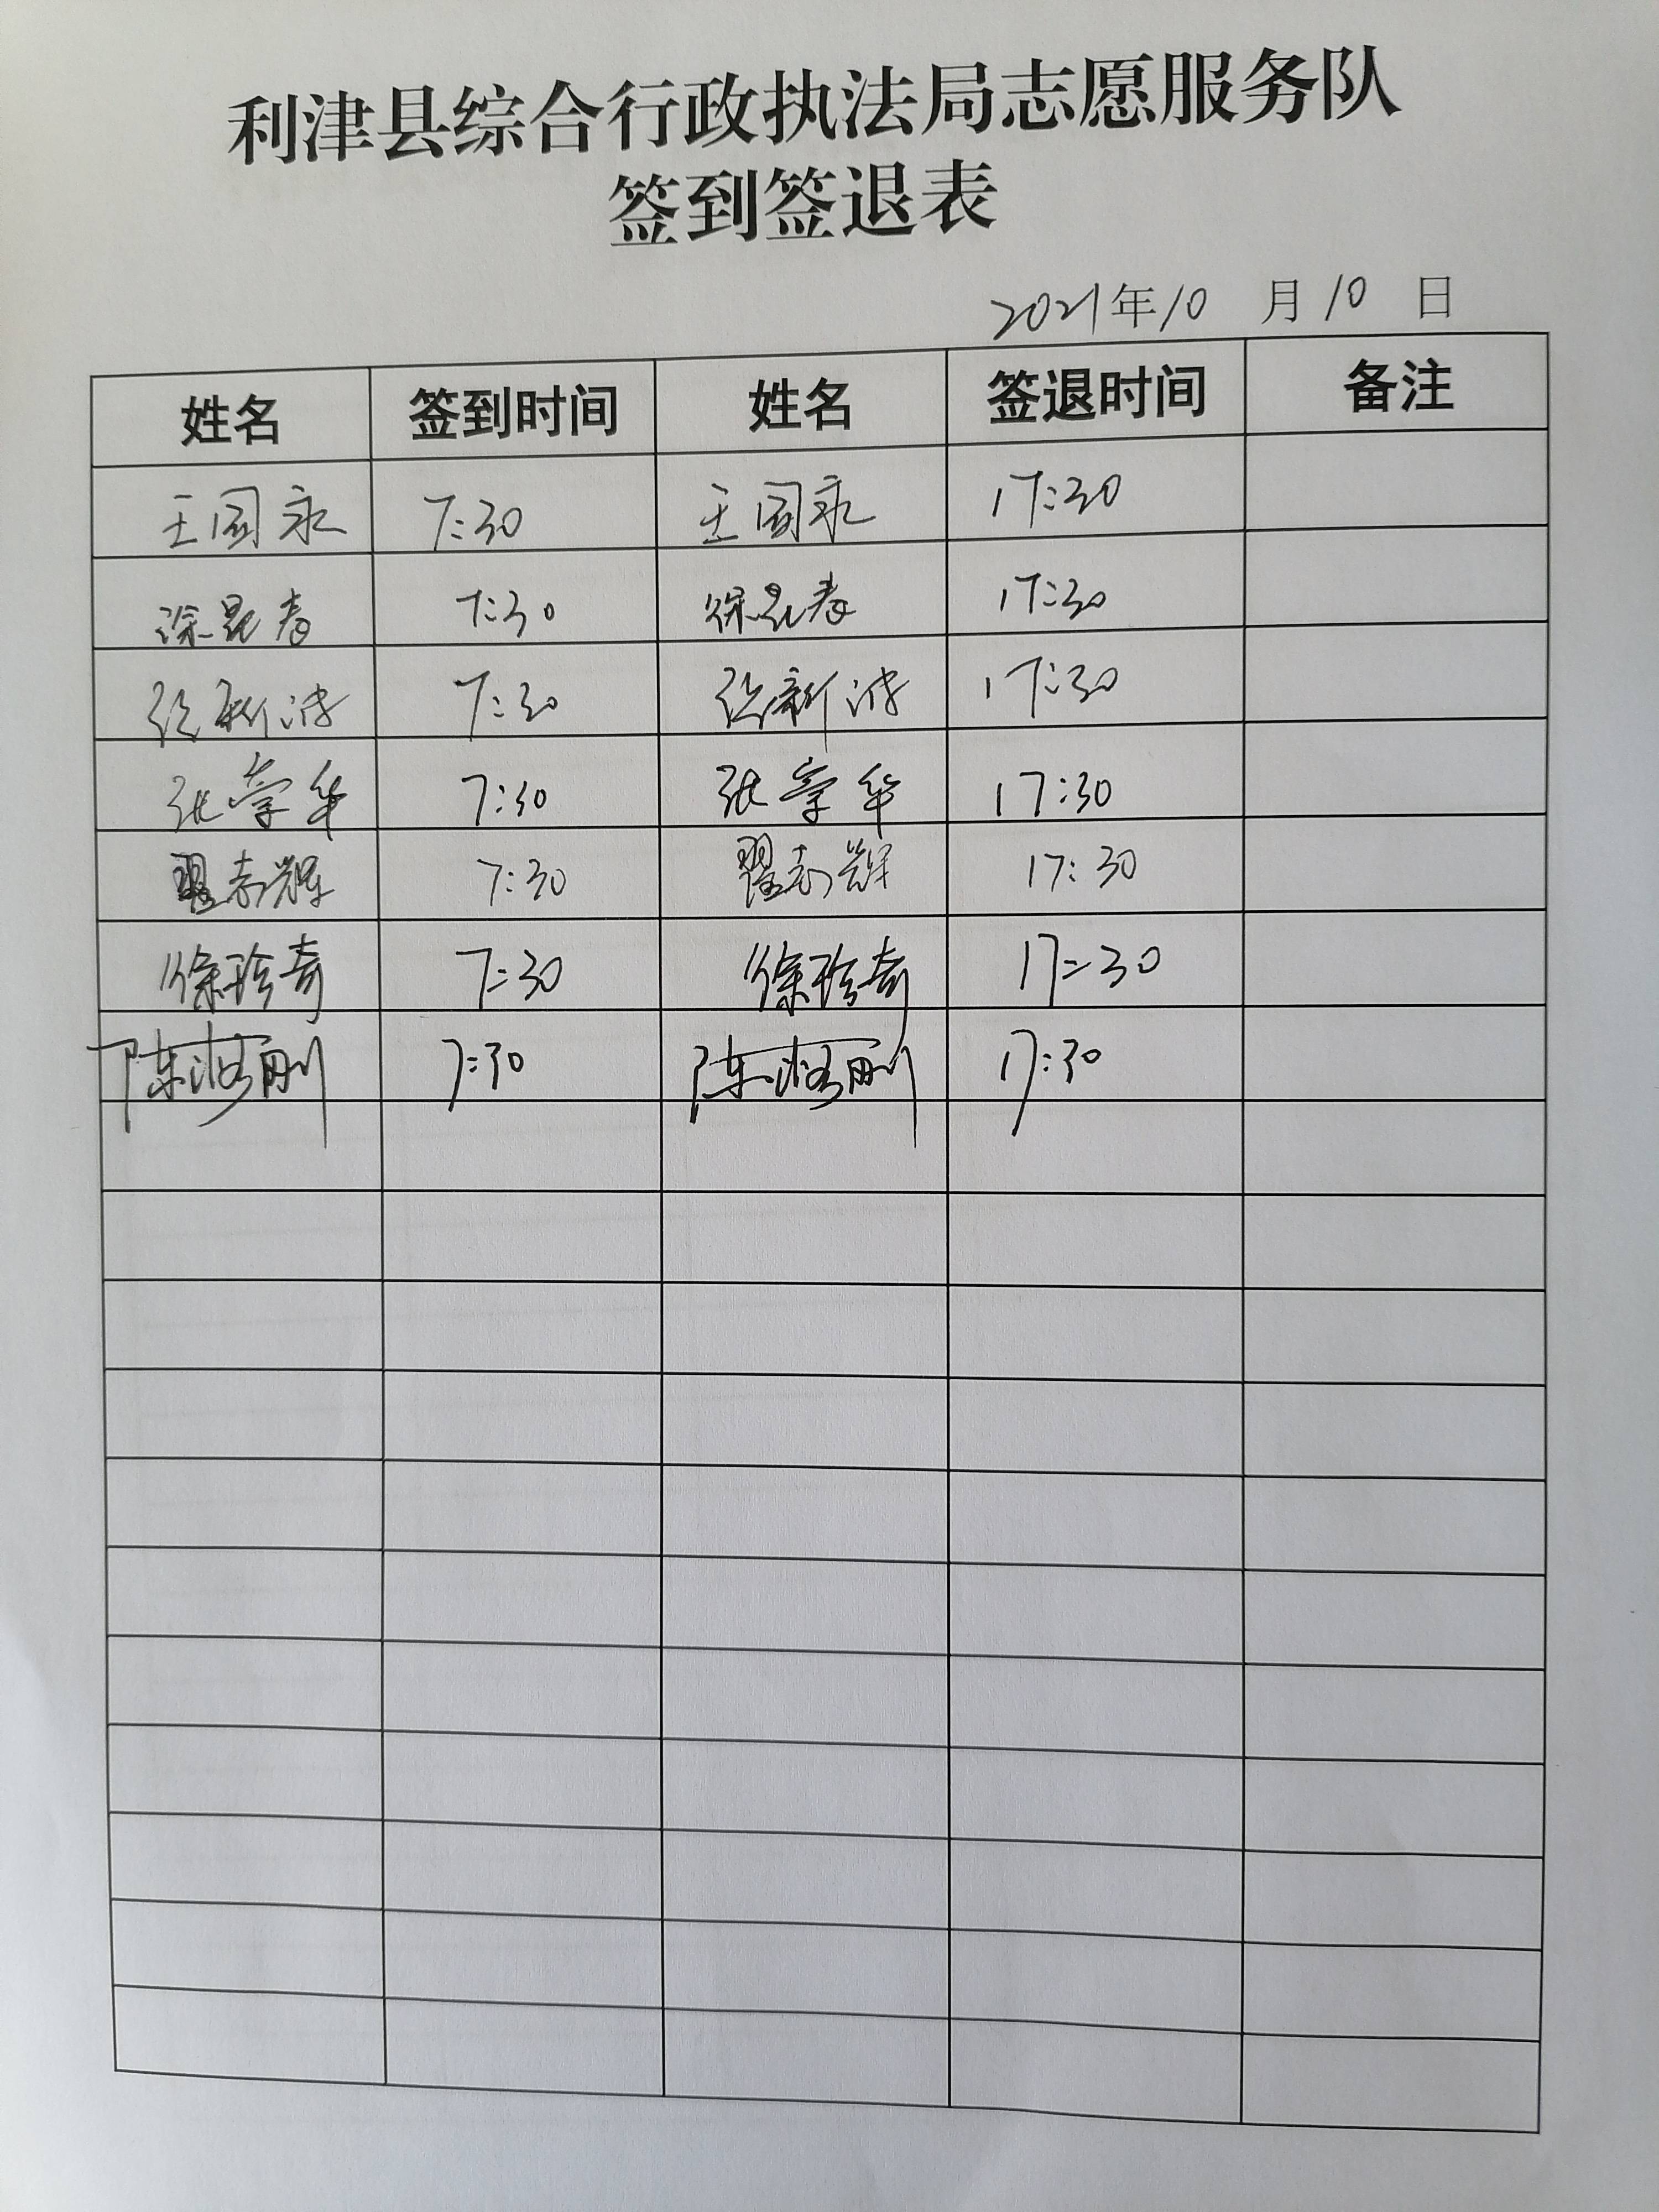 利津县综合行政执法局志愿服务队
签到签退表
2021年10月10日
姓名 签到时间 姓名 签退时间 备注
王国永 7:30 王国永 17:30
徐昆春 7:30 徐昆春 17:30
7:30 17:30
张学华 7:30 张学华 17:30
翟志辉 7:30 翟志辉 17:30
徐珍奇 7:30 徐珍奇 17:30
陈洺刚 7:30 陈洺刚 17:30